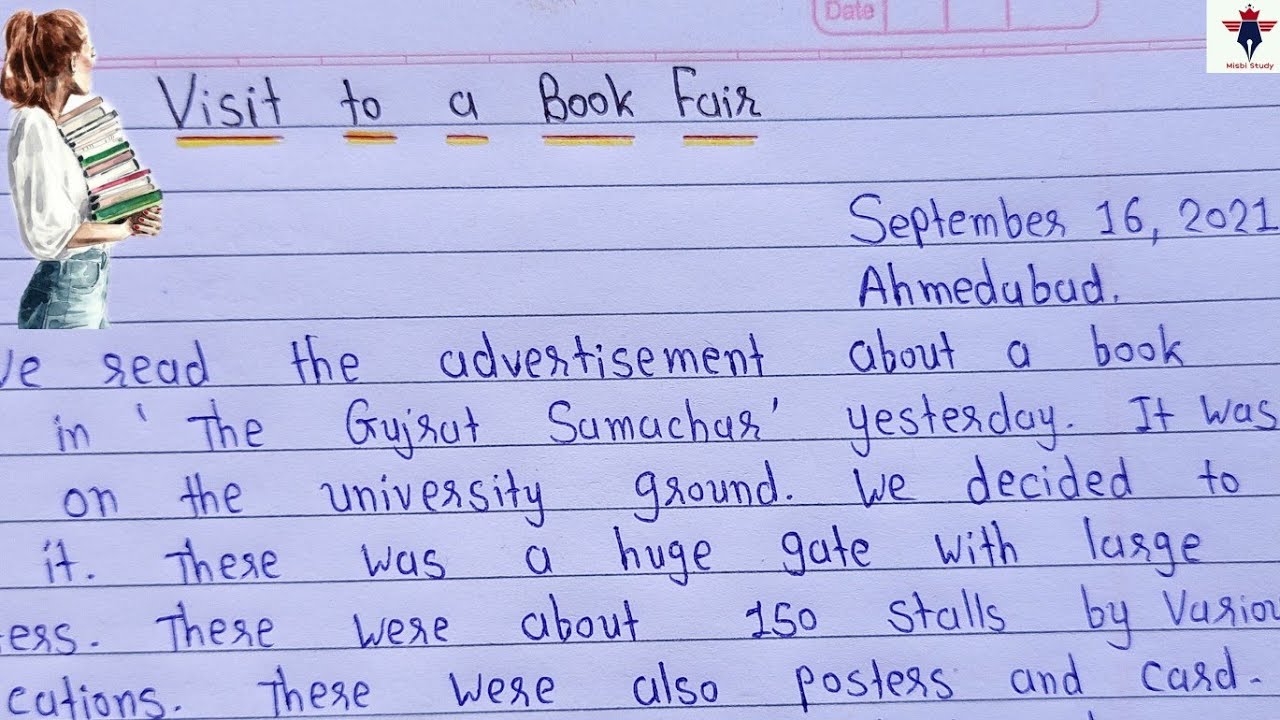 Date
Misbi Study
Visit to a Book Fair
September 16, 2021
Ahmedabad.
read the advertisement about a book
in ' The Gujrat Samachar' yesterday. It was
on the university ground. We decided to
it. There was a huge gate with large
There were about 150 stalls by
There were also posters and card-